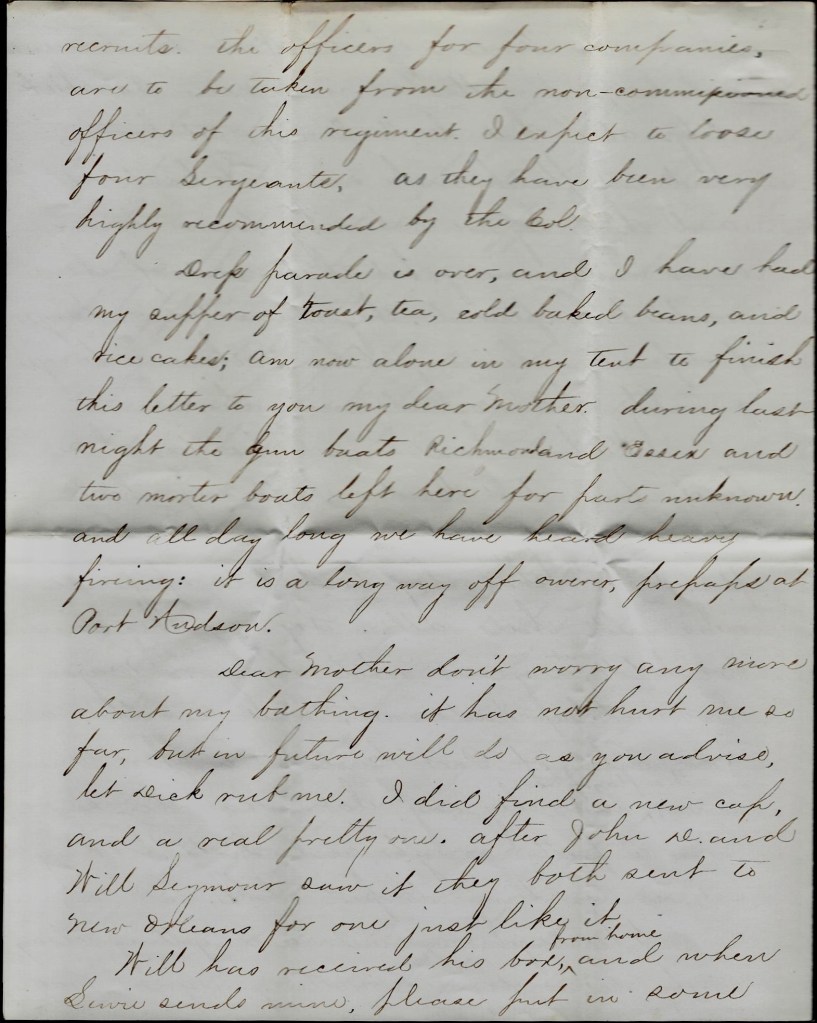 recruits. the officers for four companies,
are to be taken from the non-commissioned
officers of this regiment. I expect to loose
four Sergeants, as they have been very
highly recommended by the Col.
Dress parade is over, and I have had
my supper of toast, tea, cold baked beans, and
rice cakes; am now alone in my tent to finish
this letter to you my dear Mother. during last
night the gun boats Richmond and Essex and
two morter boats left here for part unknown.
and all day long we have heard heavy
fireing: it is a long way off owerer, prepaps at
Port Hudson.
Dear Mother don't worry any more
about my bathing. it has not hurt me so
far, but in future will do as you advise,
let Dick rub me. I did find a new cap,
and a real pretty one. after John D. and
Will Seymour saw it they both sent to
New Orleans for one just like it.
Will has received his box, from home and when
sends mine, please put in some